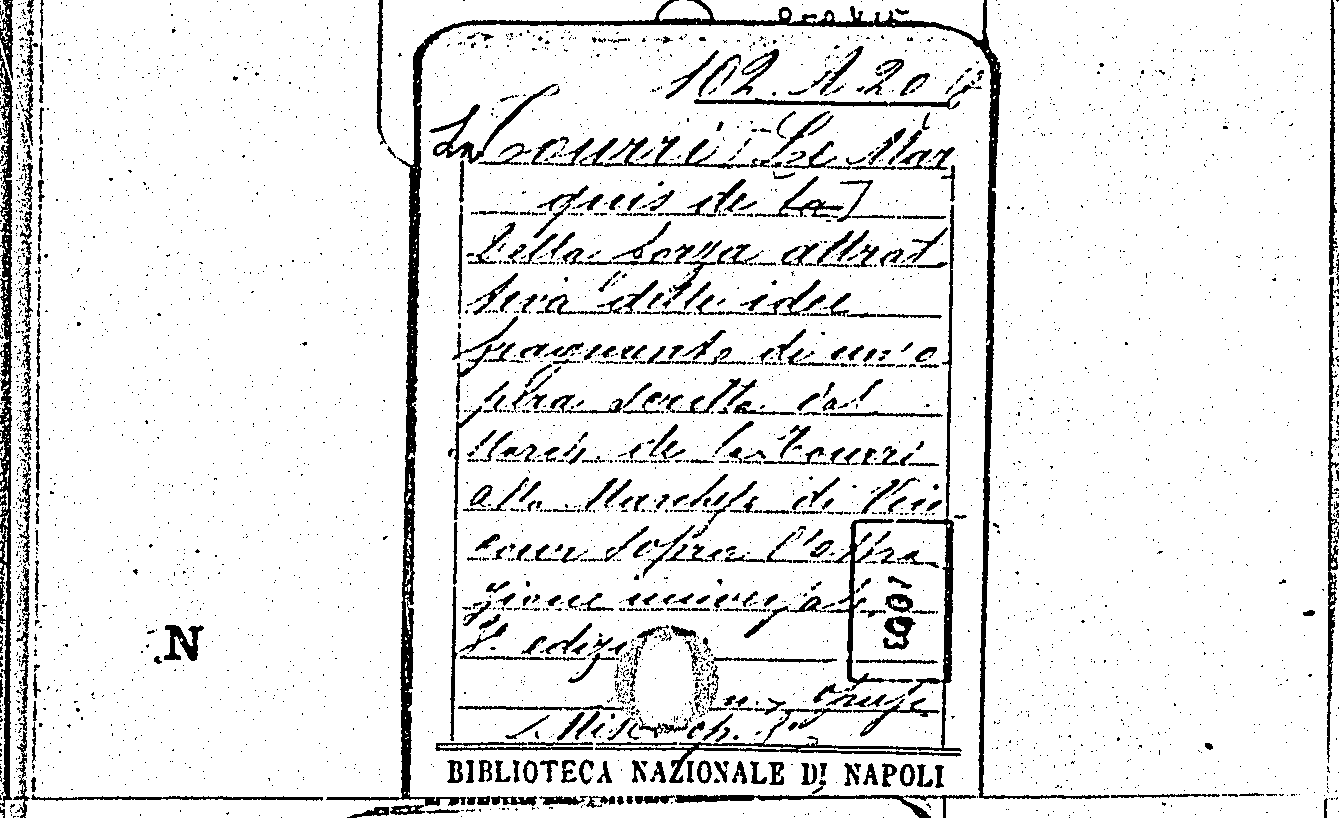 102. A. 20
La Tourri [Le Mar
quis de La]
Della forza attrat
tiva delle idee
frammento di un'o
pera scritta dal
March. de la Tourri
alla Marchesa di Vin
cour sopra l'attra
zione universale
2ª. edizi
Misc.
1003
N
BIBLIOTECA NAZIONALE DI NAPOLI